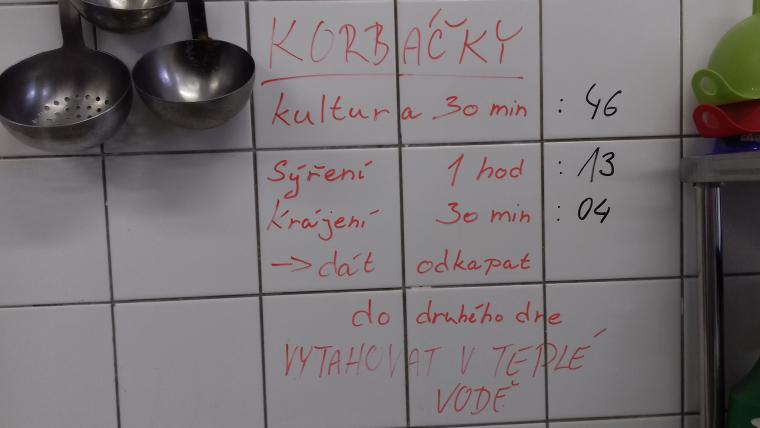 KORBÁČKY
kultura 30 min : 46
Sýření 1 hod : 13
Krájení 30 min : 04
-> dát odkapat
do druhého dne
VYTAHOVAT V TEPLÉ
VODĚ